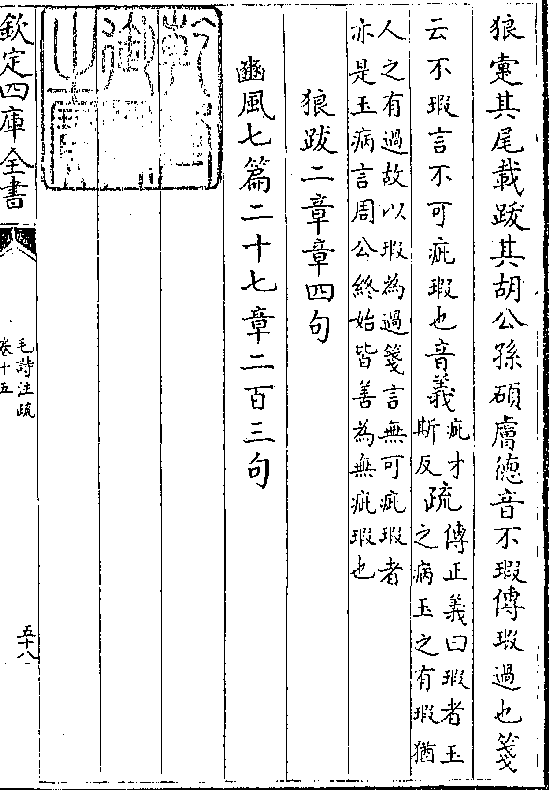 狼疐其尾載跋其胡公孫碩膚德音不瑕傳瑕過也箋
云不瑕言不可疵瑕也音義疵才斯反疏傳正義曰瑕者玉之病玉之有瑕猶
人之有過故以瑕為過箋言無可疵瑕者
亦是玉病言周公終始皆善為無疵瑕也
狼跋二章章四句
豳風七篇二十七章二百三句
欽定四庫全書
毛詩注疏
卷十五
五十八